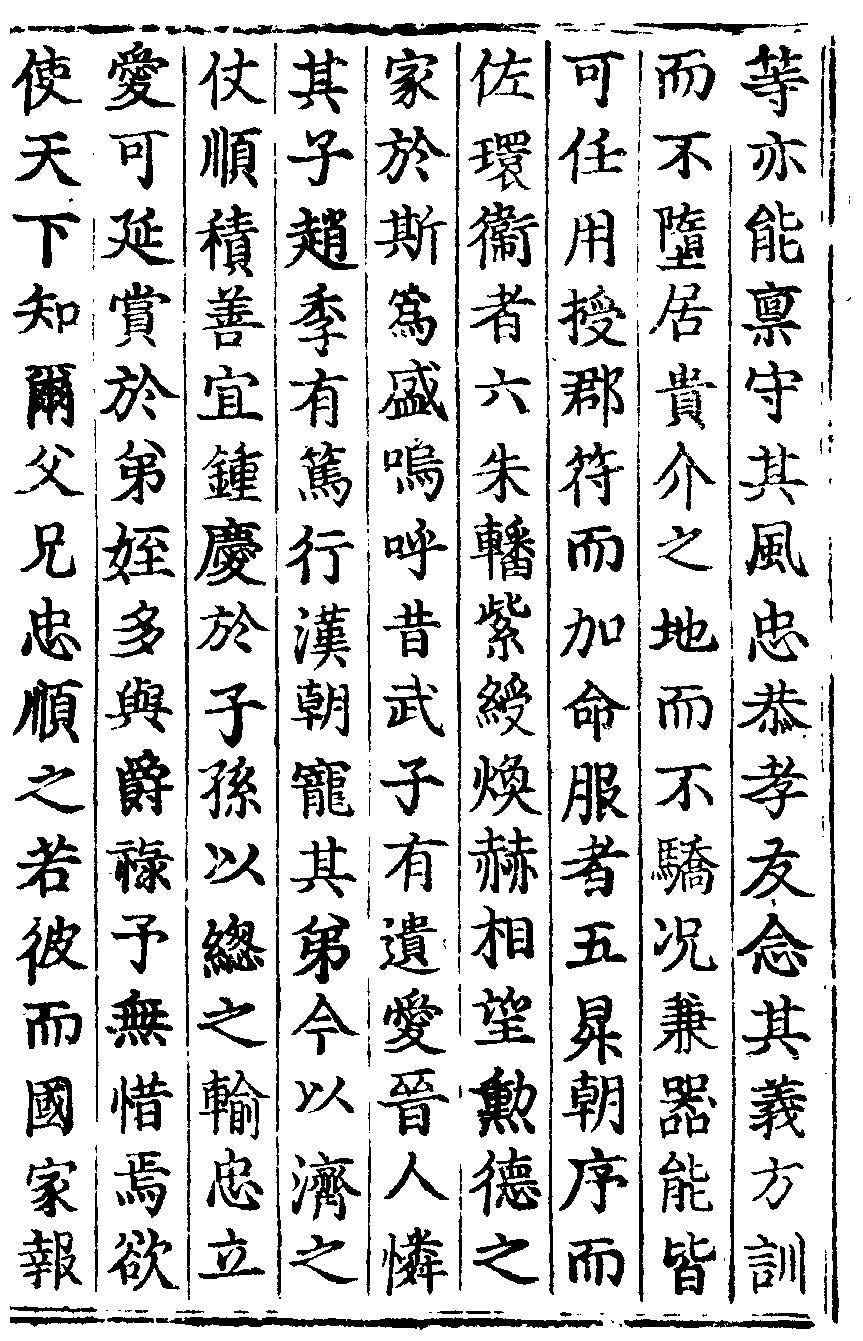 等亦能禀守其風忠恭孝友念其義方訓
而不墮居貴介之地而不驕况兼器能皆
可任用授郡符而加命服者五㫒朝序而
佐環衞者六朱轓紫綬煥赫相望勲德之
家於斯爲盛嗚呼昔武子有遺愛晉人憐
其子趙季有篤行漢朝寵其弟今以濟之
仗順積善宜鍾慶於子孫以緫之輸忠立
愛可延賞於弟姪多與爵祿予無惜焉欲
使天下知爾父兄忠順之若彼而國家報